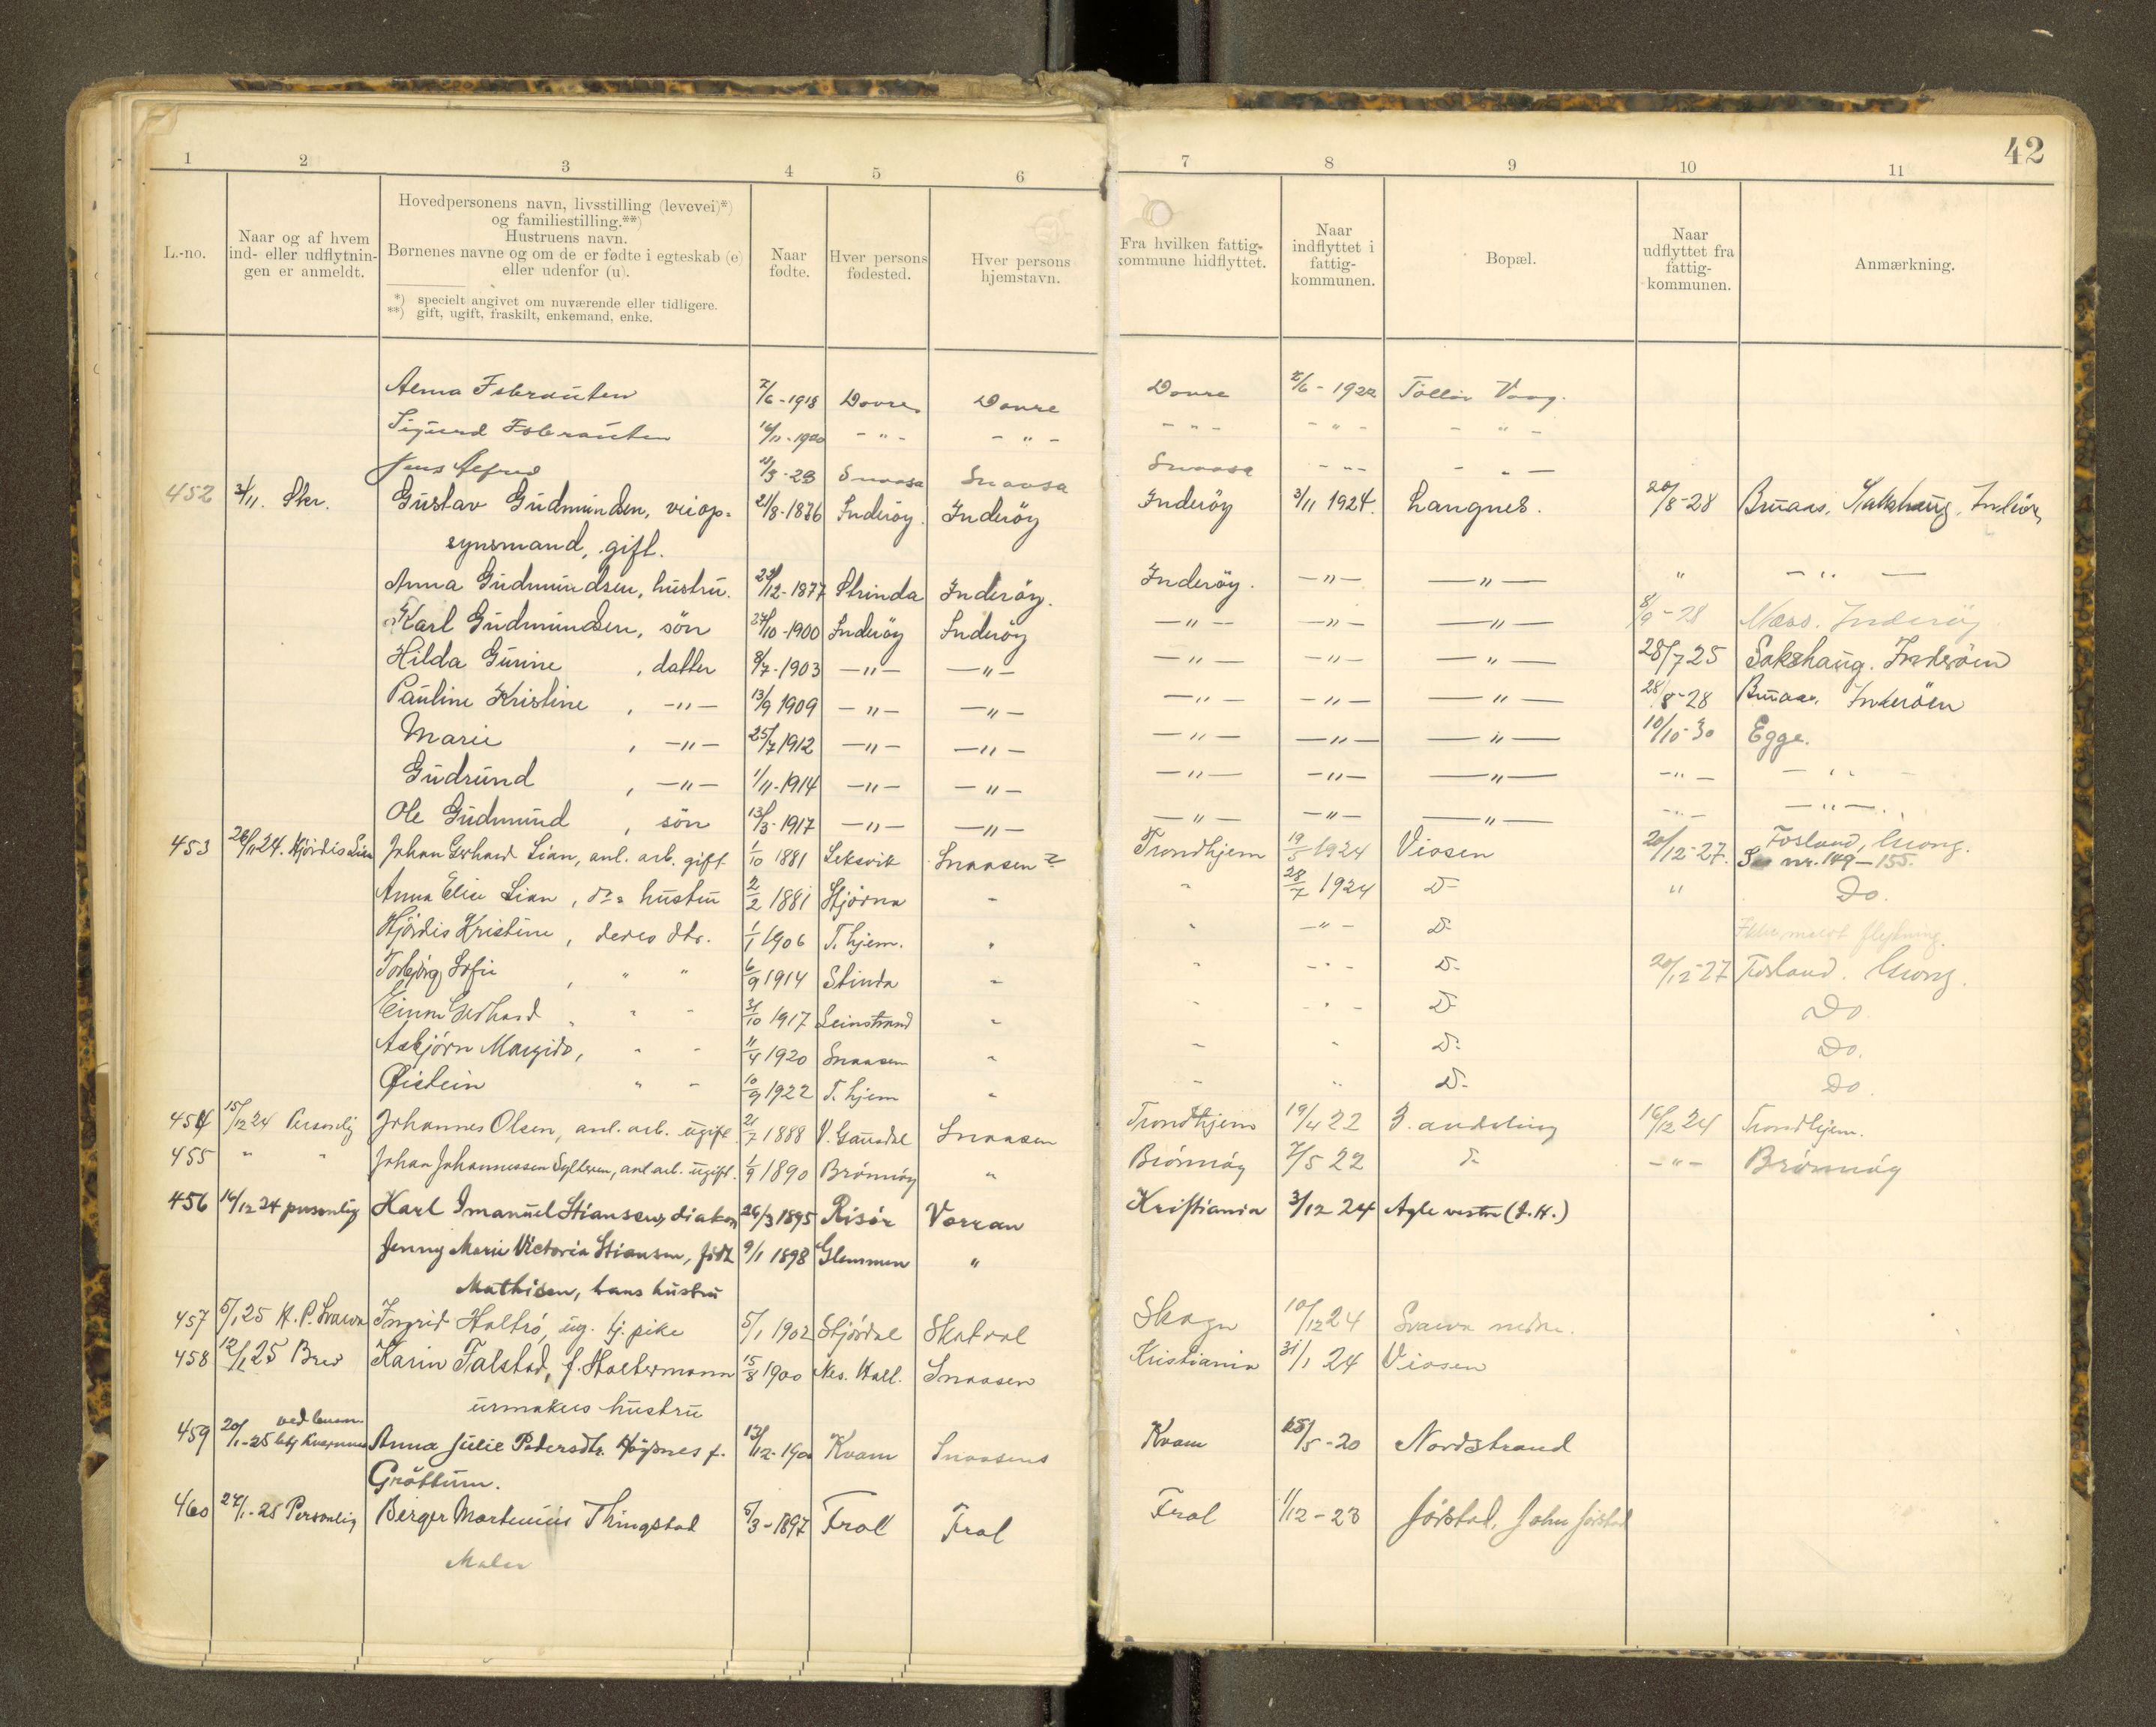 42
1 2 3 4 5 6 7 8 9 10 11
L.-no.
Naar og af hvem
ind- eller udflytnin-
gen er anmeldt.
Hovedpersonens navn, livsstilling (levevei)*)
og familiestilling.**)
Hustruens navn.
Børnenes navne og om de er fødte i egteskab (e)
eller udenfor (u).
*) specielt angivet om nuværende eller tidligere.
**) gift, ugift, fraskilt, enkemand, enke.
Naar
fødte.
Hver persons
fødested.
Hver persons
hjemstavn.
Fra hvilken fattig-
kommune hidflyttet.
Naar
indflyttet i
fattig-
kommunen.
Bopæl.
Naar
udflyttet fra
fattig-
kommunen.
Anmærkning.
Alma 7/6-1918 Dovre Dovre Dovre 2/6-1922
Sigurd 16/11-1920 - " - - " - - " - - " - - " -
Jens Alfred /3-23 Snaasa Snaasa Snaasa - " - - " -
452 3/11. Skr. Gustav Gudmundsen, veiop= 21/8-1876 Inderöy. Inderöy Inderöy 3/11 1924. Langnes. 20/8-28 Sakshaug,
synsmand, gift.
Anna Gudmundsen, hustru. 22/12-1877 Strinda Inderöy. Inderöy. -"- -"- " -"-
Karl Gudmundsen, sön 24/10-1900 Inderöy Inderöy -"- -"- -"- 8/9-28 Næss. Inderöy
Hilda Gurine , datter 8/7-1903 -"- -"- -"- -"- -"- 28/7 25 Sakshaug. Inderöen
Pauline Kristine , -"- 13/9 1909 -"- -"- -"- -"- -"- 28/8-28 Inderöen
Marie , -"- 25/7 1912 -"- -"- -"- -"- -"- 10/10-30 Egge.
Gudrund , -"- 1/11-1914 -"- -"- -"- -"- -"- -"- -"-
Ole Gudmund , sön 13/3-1917 -"- -"- -"- -"- -"- -"- -"-
453 26/11 24. Hjördis Lian Johan Gerhard Lian, anl. arb. gift 1/10 1881 Leksvik Snaasen ? Trondhjem 19/5 1924 Viosen 20/12-27. Fosland, Grong.
Se nr. 149-155.
Anna Elise Lian, ds hustru 2/2 1881 Stjörna " " 28/7 1924 D- " Do.
Hjördis Kristine, deres dtr. 1/1 1906 T.hjem. " " -"- D- Ikke meldt flytning.
Torbjörg Sofie , " " 6/9 1914 Strinda " " -"- D- 20/12-27 Fosland. Grong.
Einar Gerhard , " " 31/10 1917 Leinstrand " " -"- D- Do
Asbjörn Margido, " " 11/4 1920 Snaasen " " " D- Do.
Øistein " " 10/9 1922 T.hjem " " " D- Do
454 15/12 24 Personlig Johannes Olsen, anl. arb. ugift 21/7 1888 V. Gausdal Snaasen Trondhjem 19/4 22 3. avdeling 16/12 24 Trondhjem.
455 " " Johan Johannessen anl. arb. ugift. 1/9 1890 Brönnöy " Brönnöy 7/5 22 D- -"- Brönnöy
456 16/12 24 personlig Karl Imanuel Stiansen, diakon 26/3 1895 Risör Vorran Kristiania 3/12 24 Agle vestre (J.H.)
Jenny Marie Victoria Stiansen, född 9/1 1898 Glemmen "
Mathisen, hans hustru
457 5/1 25 H. P. Svarva Ingrid Haltrö, ug. tj. pike 5/1 1902 Stjördal Skatval Skogn 10/12 24 Svarva nedre.
458 12/1 25 Brev Karin Falstad, f. 15/8 1900 Nes. Hall. Snaasen Kristiania 31/1 24 Viosen
urmakers hustru
459 20/1-25 ved lensm. Anna Julie Pedersdtr. f. 13/12-1900 Kvam Snaasens Kvam 15/5-20 Nordstrand
Gröttum.
460 24/1-25 Personlig Berger Martinius Thingstad 5/3-1897 Frol Frol Frol 1/12-23 Jörstad, John Jörstad
Maler